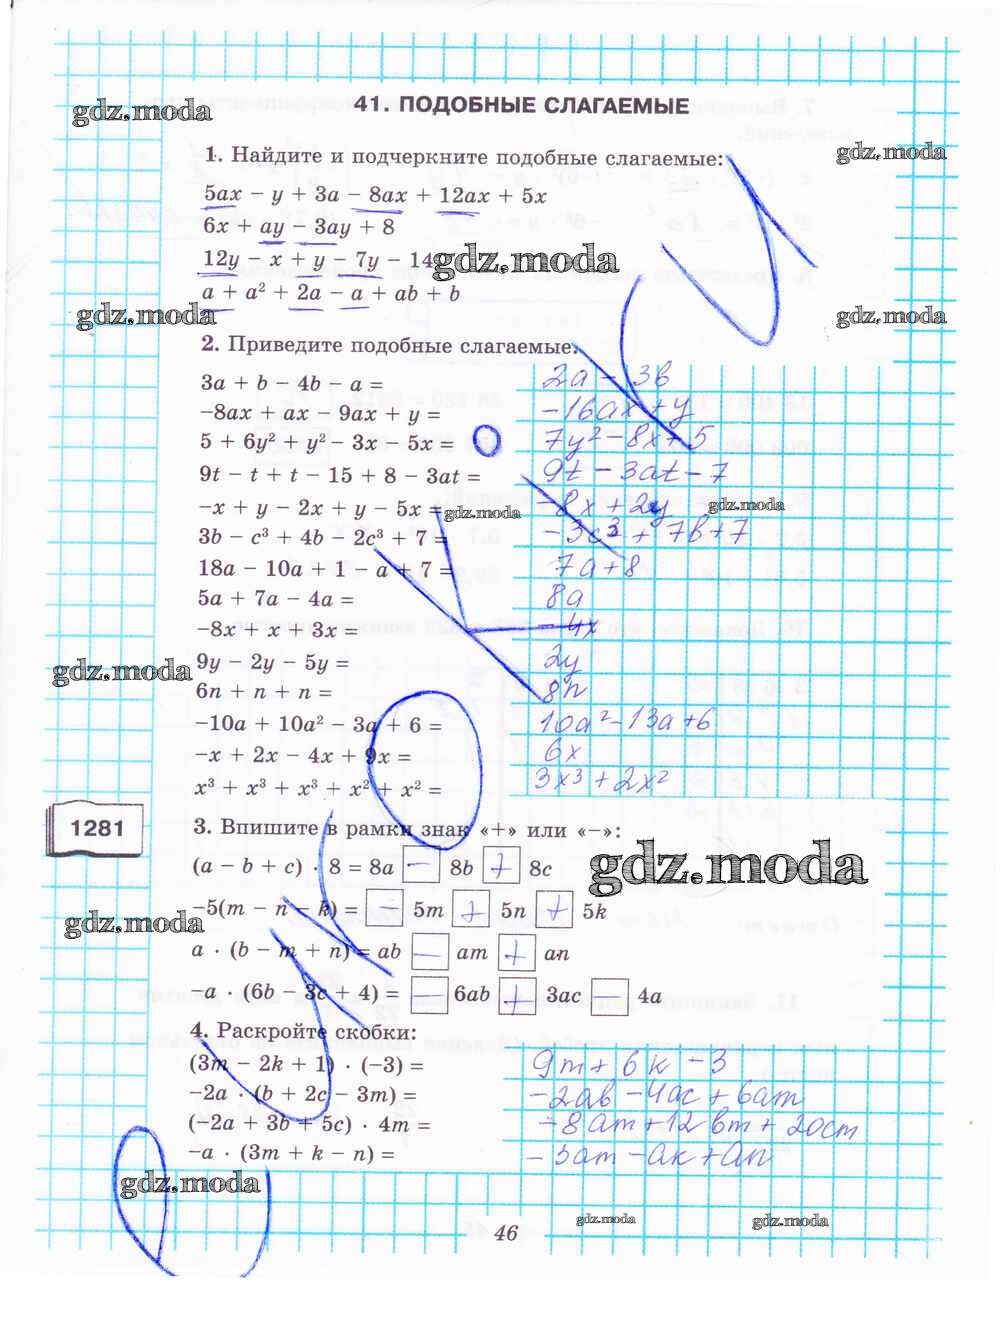 41. ПОДОБНЫЕ СЛАГАЕМЫЕ
gdz.moda
gdz.moda
1. Найдите и подчеркните подобные слагаемые:
5ax − y + 3a − 8ax + 12ax + 5x
6x + ay − 3ay + 8
12y − x + y − 7y − 14
gdz.moda
a + a² + 2a − a + ab + b
gdz.moda
gdz.moda
2. Приведите подобные слагаемые:
3a + b − 4b − a = 2a − 3b
−8ax + ax − 9ax + y = −16ax + y
5 + 6y² + y² − 3x − 5x = 7y² − 8x + 5
9t − t + t − 15 + 8 − 3at = 9t − 3at − 7
−x + y − 2x + y − 5x = −8x + 2y
gdz.moda
gdz.moda
3b − c³ + 4b − 2c³ + 7 = −3c³ + 7b + 7
18a − 10a + 1 − a + 7 = 7a + 8
5a + 7a − 4a = 8a
−8x + x + 3x = −4x
9y − 2y − 5y = 2y
gdz.moda
6n + n + n = 8n
−10a + 10a² − 3a + 6 = 10a² − 13a + 6
−x + 2x − 4x + 9x = 6x
x³ + x³ + x³ + x² + x² = 3x³ + 2x²
1281
3. Впишите в рамки знак «+» или «−»:
(a − b + c) · 8 = 8a − 8b + 8c
gdz.moda
−5(m − n − k) = − 5m + 5n + 5k
gdz.moda
a · (b − m + n) = ab − am + an
−a · (6b − 3c + 4) = − 6ab + 3ac 4a
4. Раскройте скобки:
(3m − 2k + 1) · (−3) = 9m + 6k − 3
−2a · (b + 2c − 3m) = −2ab − 4ac + 6am
(−2a + 3b + 5c) · 4m = −8am + 12bm + 20cm
−a · (3m + k − n) = −3am − ak + an
gdz.moda
46
gdz.moda
gdz.moda